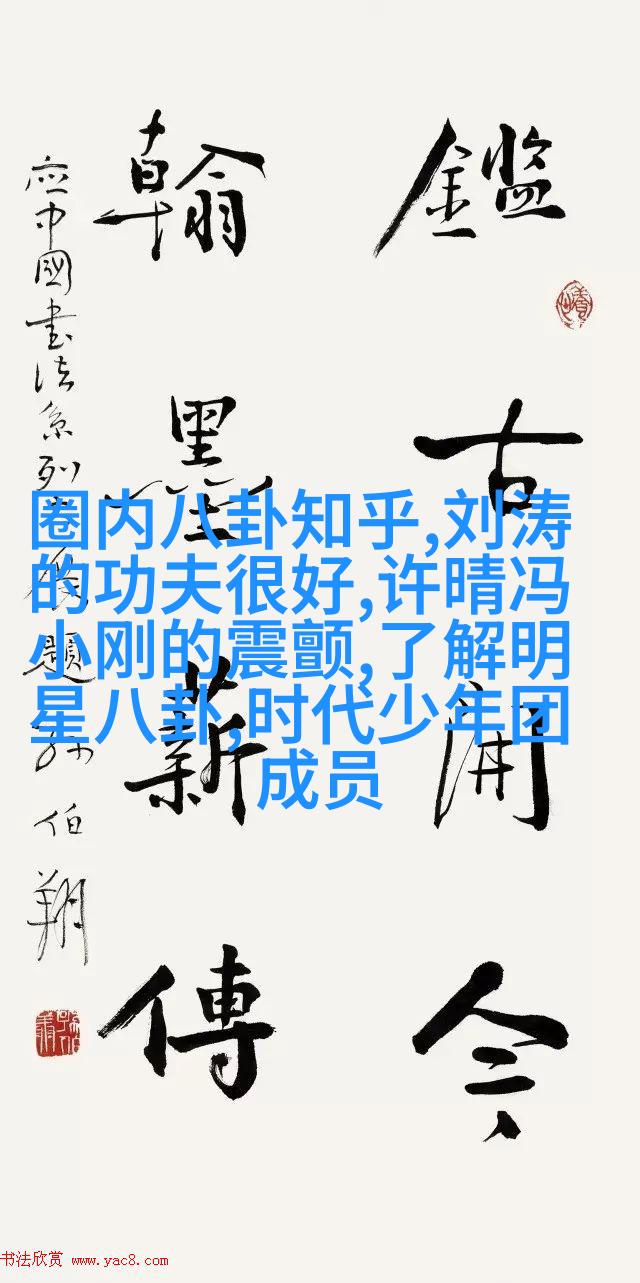 鑑古開今
翰墨薪傳
应中國書法系列題孫伯翔
圈内八卦知乎,刘涛
的功夫很好,许晴冯
小刚的震颤,了解明
星八卦,时代少年团
成员
书法欣赏 www.yac8.com